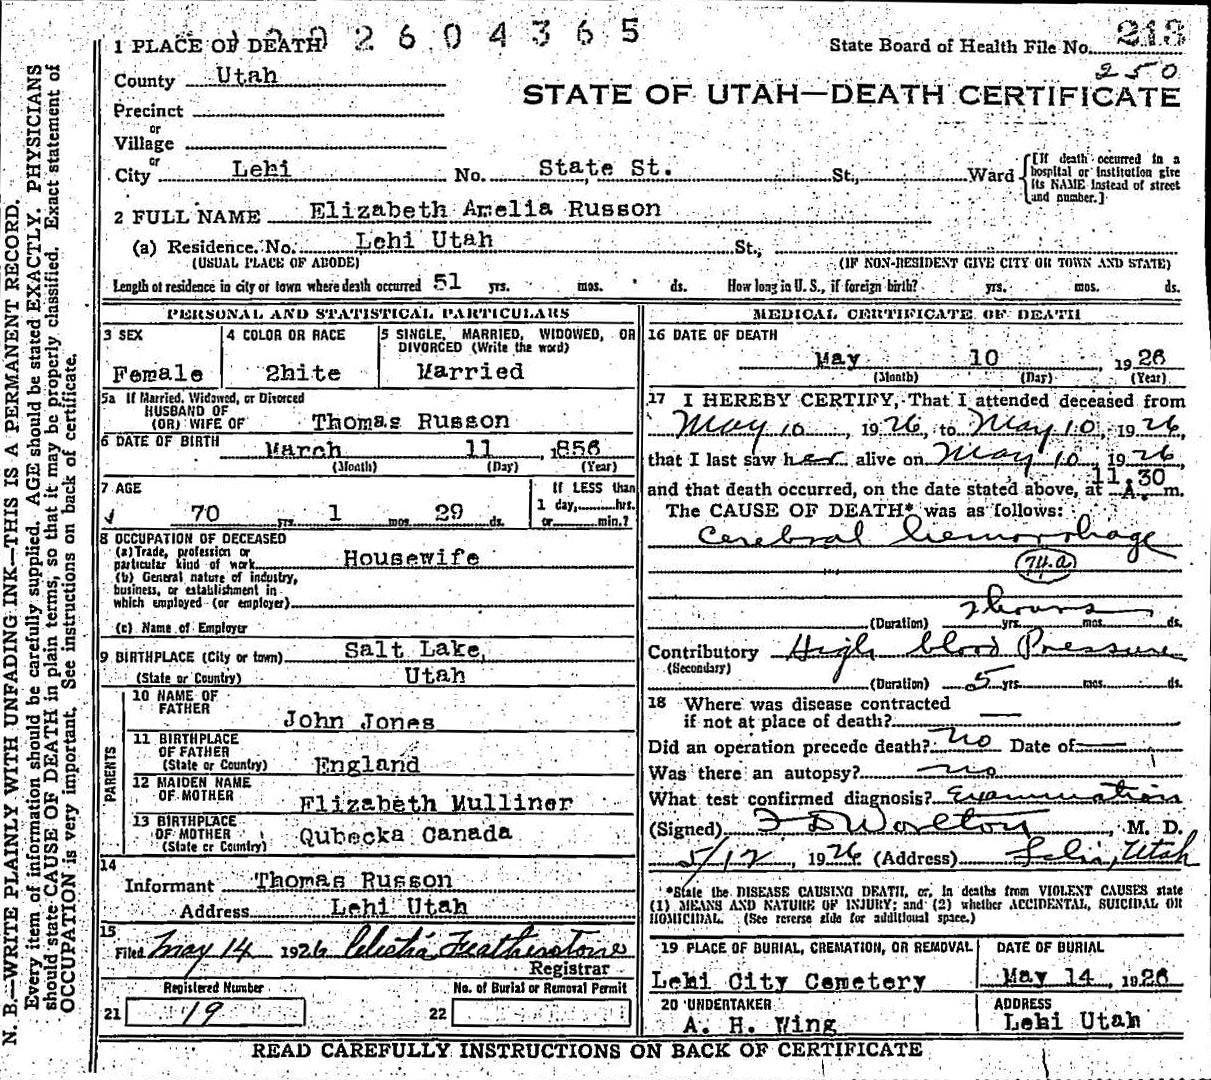 2604365
1 PLACE OF DEATH
State Board of Health File No. 213
250
County Utah
STATE OF UTAH—DEATH CERTIFICATE
Precinct
or
Village
or
City Lehi No. State St. St., Ward [If death occurred in a hospital or institution give its NAME instead of street and number.]
2 FULL NAME Elizabeth Amelia Russon
(a) Residence. No. Lehi Utah St.,
(USUAL PLACE OF ABODE) (IF NON-RESIDENT GIVE CITY OR TOWN AND STATE)
Length of residence in city or town where death occurred 51 yrs. mos. ds. How long in U. S., if foreign birth? yrs. mos. ds.
PERSONAL AND STATISTICAL PARTICULARS
3 SEX
Female
4 COLOR OR RACE
2hite
5 SINGLE, MARRIED, WIDOWED, OR
DIVORCED (Write the word)
Married
5a If Married, Widowed, or Divorced
HUSBAND OF
(OR) WIFE OF Thomas Russon
6 DATE OF BIRTH March 11, 1856
(Month) (Day) (Year)
7 AGE
70 yrs. 1 mos. 29 ds.
If LESS than
1 day, hrs.
or min.?
8 OCCUPATION OF DECEASED
(a) Trade, profession or
particular kind of work Housewife
(b) General nature of industry,
business, or establishment in
which employed (or employer)
(c) Name of Employer
9 BIRTHPLACE (City or town) Salt Lake,
(State or Country) Utah
PARENTS
10 NAME OF
FATHER
John Jones
11 BIRTHPLACE
OF FATHER
(State or Country) England
12 MAIDEN NAME
OF MOTHER Elizabeth Mulliner
13 BIRTHPLACE
OF MOTHER
(State or Country) Qubecka Canada
14
Informant Thomas Russon
Address Lehi Utah
15
Filed May 14 1926 Celestia Featherstone
Registrar
Registered Number
21 19
No. of Burial or Removal Permit
22
MEDICAL CERTIFICATE OF DEATH
16 DATE OF DEATH
May 10, 1926
(Month) (Day) (Year)
17 I HEREBY CERTIFY, That I attended deceased from
May 10, 1926, to May 10, 1926,
that I last saw her alive on May 10, 1926,
11.30
and that death occurred, on the date stated above, at A. m.
The CAUSE OF DEATH* was as follows:
Cerebral hemorrhage
74.a
2 hours
(Duration) yrs. mos. ds.
Contributory High blood Pressure
(Secondary)
(Duration) 5 yrs. mos. ds.
18 Where was disease contracted
if not at place of death? —
Did an operation precede death? no Date of —
Was there an autopsy? no
What test confirmed diagnosis? Examination
(Signed) F D Worlton, M. D.
5/12, 1926 (Address) Lehi, Utah
*State the DISEASE CAUSING DEATH, or, in deaths from VIOLENT CAUSES state
(1) MEANS AND NATURE OF INJURY; and (2) whether ACCIDENTAL, SUICIDAL OR
HOMICIDAL. (See reverse side for additional space.)
19 PLACE OF BURIAL, CREMATION, OR REMOVAL
Lehi City Cemetery
DATE OF BURIAL
May 14, 1926
20 UNDERTAKER
A. H. Wing
ADDRESS
Lehi Utah
READ CAREFULLY INSTRUCTIONS ON BACK OF CERTIFICATE
N. B.—WRITE PLAINLY WITH UNFADING INK—THIS IS A PERMANENT RECORD.
Every item of information should be carefully supplied. AGE should be stated EXACTLY. PHYSICIANS
should state CAUSE OF DEATH in plain terms, so that it may be properly classified. Exact statement of
OCCUPATION is very important. See instructions on back of certificate.